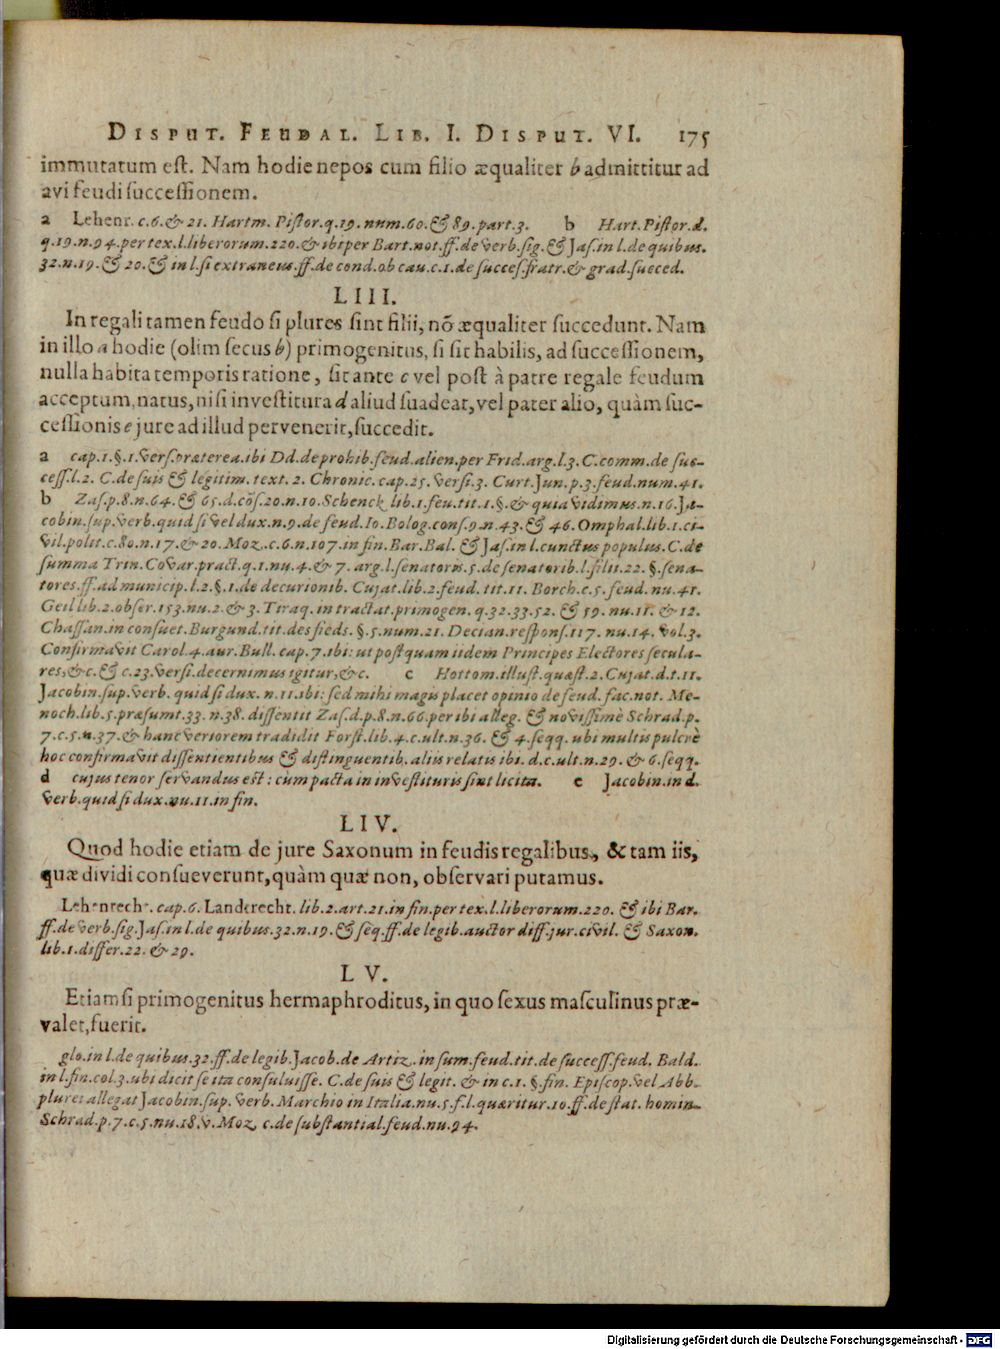 DISPUT. FEUDAL. LIB. I. DISPUT. VI. 175
immutatum eſt. Nam hodie nepos cum filio æqualiter b admittitur ad
avi feudi ſucceſſionem.
a Lehenr. c.6.& 21. Hartm. Piſtor.q.19.num.60.& 89.part.3. b Hart.Piſtor.d.
q.19.n.94.per tex.l.liberorum.220.& ibi per Bart.not.ff.de verb.ſig.& Jaſ.in l.de quibus.
32.n.19.& 20.& in l.ſi extraneus.ff.de cond.ob cau.c.1.de ſucceſ.fratr.& grad.ſucced.
LIII.
In regali tamen feudo ſi plures ſint filii, nõ æqualiter ſuccedunt. Nam
in illo a hodie (olim ſecus b) primogenitus, ſi ſit habilis, ad ſucceſſionem,
nulla habita temporis ratione, ſit ante c vel poſt à patre regale feudum
acceptum, natus, niſi inveſtitura d aliud ſuadeat, vel pater alio, quàm ſuc-
ceſſionis e jure ad illud pervenerit, ſuccedit.
a cap.1.§.1.verſ.præterea.ibi Dd.de prohib.feud.alien.per Frid.arg.l.3.C.comm.de ſuc-
ceſſ.l.2. C.de ſuis & legitim.text.2. Chronic.cap.25. verſi.3. Curt.Jun.p.3.feud.num.41.
b Zaſ.p.8.n.64.& 65.d.cõſ.20.n.10.Schenck lib.1.feu.tit.1.§.& quia vidimus.n.16.Ja-
cobin.ſup.verb.quid ſi vel dux.n.9.de feud.Io.Bolog.conſ.9.n.43.& 46.Omphal.lib.1.ci-
vil.polit.c.80.n.17.& 20.Moz.c.6.n.107.in fin.Bar.Bal.& Jaſ.in l.cunctus populus.C.de
ſumma Trin.Covar.pract.q.1.nu.4.& 7.arg.l.ſenatoris.5.de ſenatorib.l.filii.22.§.ſena-
tores.ff.ad municip.l.2.§.1.de decurionib. Cujat.lib.2.feud.tit.11. Borch.c.5.feud.nu.41.
Geil lib.2.obſer.153.nu.2.& 3. Tiraq.in tractat.primogen.q.32.33.52.& 59.nu.11.& 12.
Chaſſan.in conſuet.Burgund.tit.des fieds.§.5.num.21.Decian.reſponſ.117.nu.14.vol.3.
Confirmavit Carol.4.aur.Bull.cap.7.ibi: ut poſtquam iidem Principes Electores ſecula-
res,&c.& c.23.verſi.decernimus igitur,&c. c Hottom.illuſt.quæſt.2.Cujat.d.t.11.
Jacobin.ſup.verb.quid ſi dux.n.11.ibi: ſed mihi magis placet opinio de feud.fac.not.Me-
noch.lib.5.præſumt.33.n.38.diſſentit Zaſ.d.p.8.n.66.per ibi alleg.& noviſſimè Schrad.p.
7.c.5.n.37.& hanc veriorem tradidit Forſt.lib.4.c.ult.n.36.& 4.ſeqq.ubi multis pulcrè
hoc confirmavit diſſentientibus & diſtinguentib.aliis relatis ibi.d.c.ult.n.29.& 6.ſeqq.
d cujus tenor ſervandus eſt: cùm pacta in inveſtituris ſint licita. e Jacobin.in d.
verb.quid ſi dux.nu.11.in fin.
LIV.
Quod hodie etiam de jure Saxonum in feudis regalibus, & tam iis,
quæ dividi conſueverunt, quàm quæ non, obſervari putamus.
Lehenrecht. cap.6. Landtrecht. lib.2.art.21.in fin.per tex.l.liberorum.220.& ibi Bar.
ff.de verb.ſig.Jaſ.in l.de quibus.32.n.19.& ſeq.ff.de legib.auctor diff.jur.civil.& Saxon.
lib.1.differ.22.& 29.
LV.
Etiamſi primogenitus hermaphroditus, in quo ſexus maſculinus præ-
valet, fuerit.
glo.in l.de quibus.32.ff.de legib.Jacob.de Artiz.in ſum.feud.tit.de ſucceſſ.feud. Bald.
in l.fin.col.3.ubi dicit ſe ita conſuluiſſe. C.de ſuis & legit.& in c.1.§.fin. Epiſcop.vel Abb.
plures allegat Jacobin.ſup.verb.Marchio in Italia.nu.5.f.l.quæritur.10.ff.de ſtat.homin.
Schrad.p.7.c.5.nu.18.v.Moz.c.de ſubſtantial.feud.nu.94.
Digitalisierung gefördert durch die Deutsche Forschungsgemeinschaft - DFG